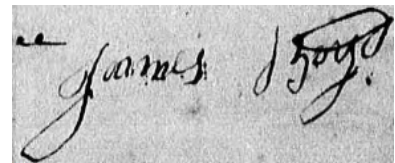 James Boyd